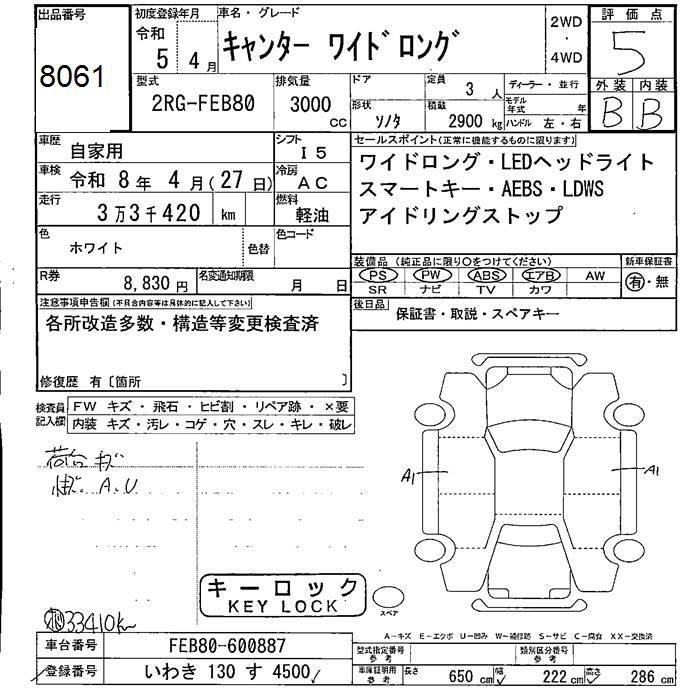 出品番号
8061
初度登録年月
令和
5 年 4 月
車名・グレード
キャンター ワイドロング
2WD
・
4WD
評価点
5
型式
2RG-FEB80
排気量
3000
CC
ドア
定員
3 人
ディーラー・並行
形状
ソノタ
積載
2900 kg
モデル年式
年
ハンドル 左・右
外装 内装
B B
車歴
自家用
シフト
I 5
車検
令和 8 年 4 月 ( 27 日)
冷房
AC
走行
3万3千420 km
燃料
軽油
色
ホワイト
色替
色コード
R券
8,830 円
名変通知期限
月 日
セールスポイント(正常に機能するものに限ります)
ワイドロング・LEDヘッドライト
スマートキー・AEBS・LDWS
アイドリングストップ
装備品 (純正品に限り〇をつけてください)
新車保証書
PS PW ABS エアB AW
SR ナビ TV カワ
有・無
後日品
保証書・取説・スペアキー
注意事項申告欄(不具合内容等は具体的に記入して下さい)
各所改造多数・構造等変更検査済
修復歴 有〔箇所 〕
検査員記入欄
FW キズ・飛石・ヒビ割・リペア跡・×要
内装 キズ・汚レ・コゲ・穴・スレ・キレ・破レ
荷台 キズ
A.U
A1
A1
キーロック
KEY LOCK
スペア
33410km
A-キズ E-エクボ U-凹み W-補修跡 S-サビ C-腐食 XX-交換済
車台番号
FEB80-600887
登録番号
いわき 130 す 4500
型式指定番号
参考
類別区分番号
参考
車庫証明用
参考
長さ
650 cm
幅
222 cm
高さ
286 cm